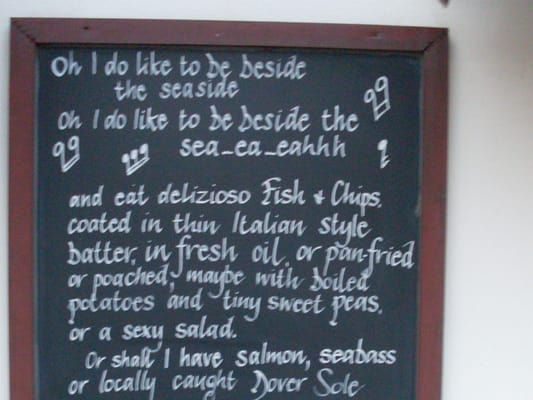 Oh I do like to be beside
the seaside
Oh I do like to be beside the
sea-ea-eahhh
and eat delizioso Fish & Chips,
coated in thin Italian style
batter, in fresh oil, or pan-fried
or poached, maybe with boiled
potatoes and tiny sweet peas,
or a sexy salad.
Or shall I have salmon, seabass
or locally caught Dover Sole